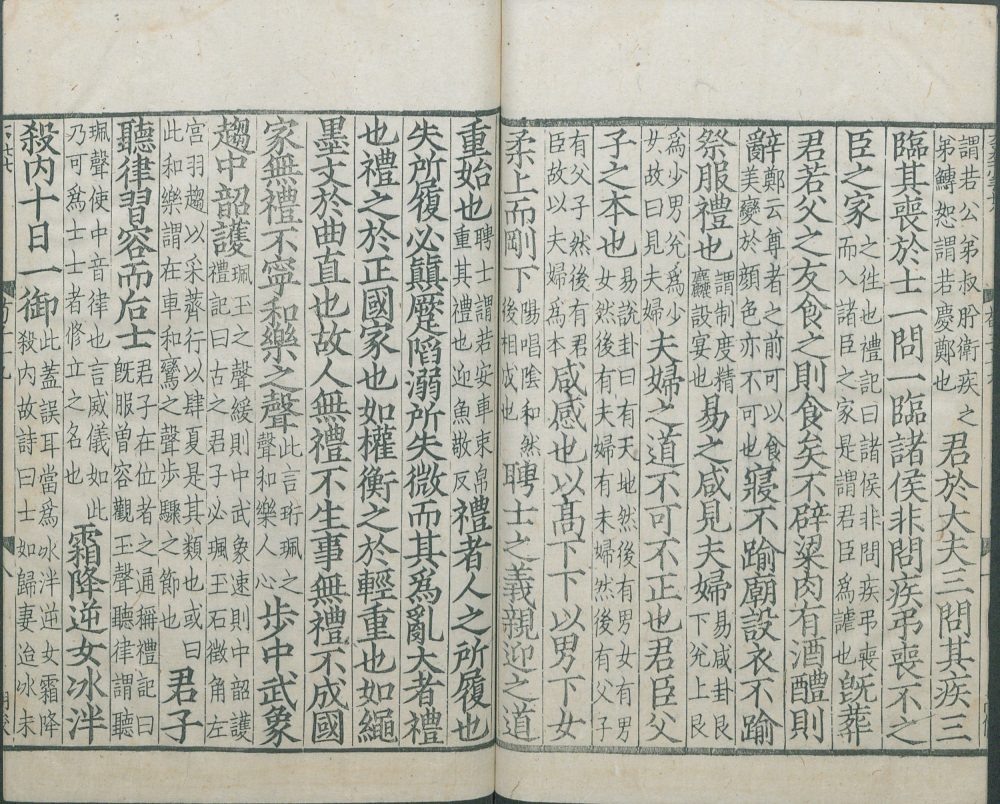 謂若公弟叔肸衛侯之弟鱄恕謂若慶鄭也君於大夫三問其疾三
臨其喪於士一問一臨諸侯非問疾弔喪不之
臣之家之往也禮記曰諸侯非問疾弔喪而入諸臣之家是謂君臣爲謔也旣葬
君若父之友食之則食矣不辟梁肉有酒醴則
辭鄭云尊者之前可以食美變於顏色亦不可也寢不踰廟設衣不踰
祭服禮也謂制度精麤設宴也易之咸見夫婦易咸卦艮下兌上艮
爲少男兌爲少女故曰見夫婦夫婦之道不可不正也君臣父
子之本也易說卦曰有天地然後有男女有男女然後有夫婦有未婦然後有父子
有父子然後有君臣故以夫婦爲本咸感也以髙下下以男下女
柔上而剛下陽唱陰和然後相成也聘士之義親迎之道
重始也聘士謂若安車束帛重其禮也迎魚敬反禮者人之所履也
失所履必顚蹷陷溺所失微而其爲亂大者禮
也禮之於正國家也如權衡之於輕重也如繩
墨之於曲直也故人無禮不生事無禮不成國
家無禮不寧和樂之聲此言珩珮之聲和樂人心步中武象
趨中韶護珮玉之聲緩則中武象速則中韶護禮記曰古之君子必珮玉右徵角左
宮羽趨以采薺行以肆夏是其類也或曰此和樂謂在車和鸞之聲步驟之節也君子
聽律習容而后士君子在位者之通稱禮記曰旣服習容觀玉聲聽律謂聽
珮聲使中音律也言威儀如此乃可爲士士者修立之名也霜降逆女冰泮
殺內十日一御此蓋誤耳當爲冰泮逆女霜降殺內故詩曰士如歸妻迨冰未